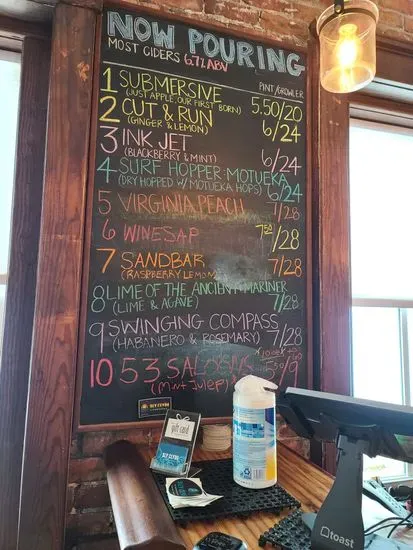 NOW POURING
MOST CIDERS 6.7% ABV
PINT/GROWLER
1 SUBMERSIVE 5.50/20
(JUST APPLE, OUR FIRST BORN)
2 CUT & RUN 6/24
(GINGER & LEMON)
3 INK JET 6/24
(BLACKBERRY & MINT)
4 SURF HOPPER: MOTUEKA 6/24
(DRY HOPPED W/ MOTUEKA HOPS)
5 VIRGINIA PEACH 7/28
6 WINESAP 7.50/28
7 SANDBAR 7/28
(RASPBERRY LEMON)
8 LIME OF THE ANCIENT MARINER 7/28
(LIME & AGAVE)
9 SWINGING COMPASS 7/28
(HABANERO & ROSEMARY)
10 53
(Mint Julep)
SLY CLYDE
gift card
SLY CLYDE
toast